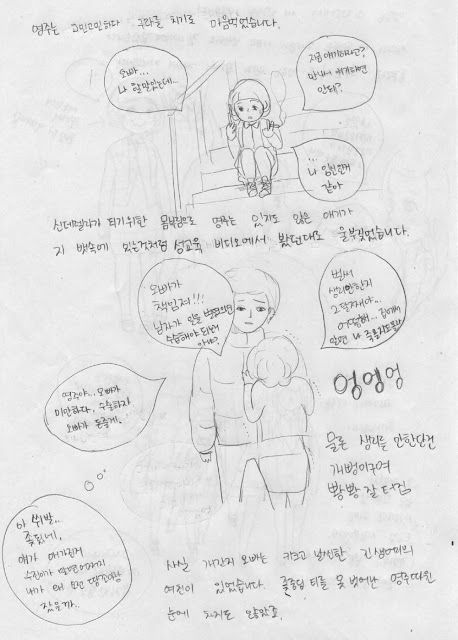 영주는 고민고민하다 구라를 치기로 마음먹었습니다.
오빠...
나 할말있는데...
지금 얘기하라고?
만나서 얘기하면
안돼?
나 임신한거
같아
신데렐라가 되기위한 몸부림으로 영주는 있지도 않은 애기가
지 뱃속에 있는것처럼 성교육 비디오에서 봤던대로 울부짖었습니다.
오빠가
책임져!!!
남자가 일을 벌렸으면
수습해야 되는거
아냐?
벌써
생리안한지
2달째야...
어떡해... 집에서
알면 나 죽을지도몰라
영주야.. 오빠가
미안하다, 수술하자
오빠가 돈줄게.
엉엉엉
물론 생리를 안한단건
개뻥이구여
뻥뻥 잘 터짐
아 씨발..
좆됐네,
얘가 애가진거
수진이가 알면어쩌지
내가 왜 요런 땅꼬마랑
잤을까..
사실 개간지 오빠는 키크고 날씬한 긴생머리의
여친이 있었습니다. 중딩 티를 못 벗어난 영주따윈
눈에 차지도 않았죠.